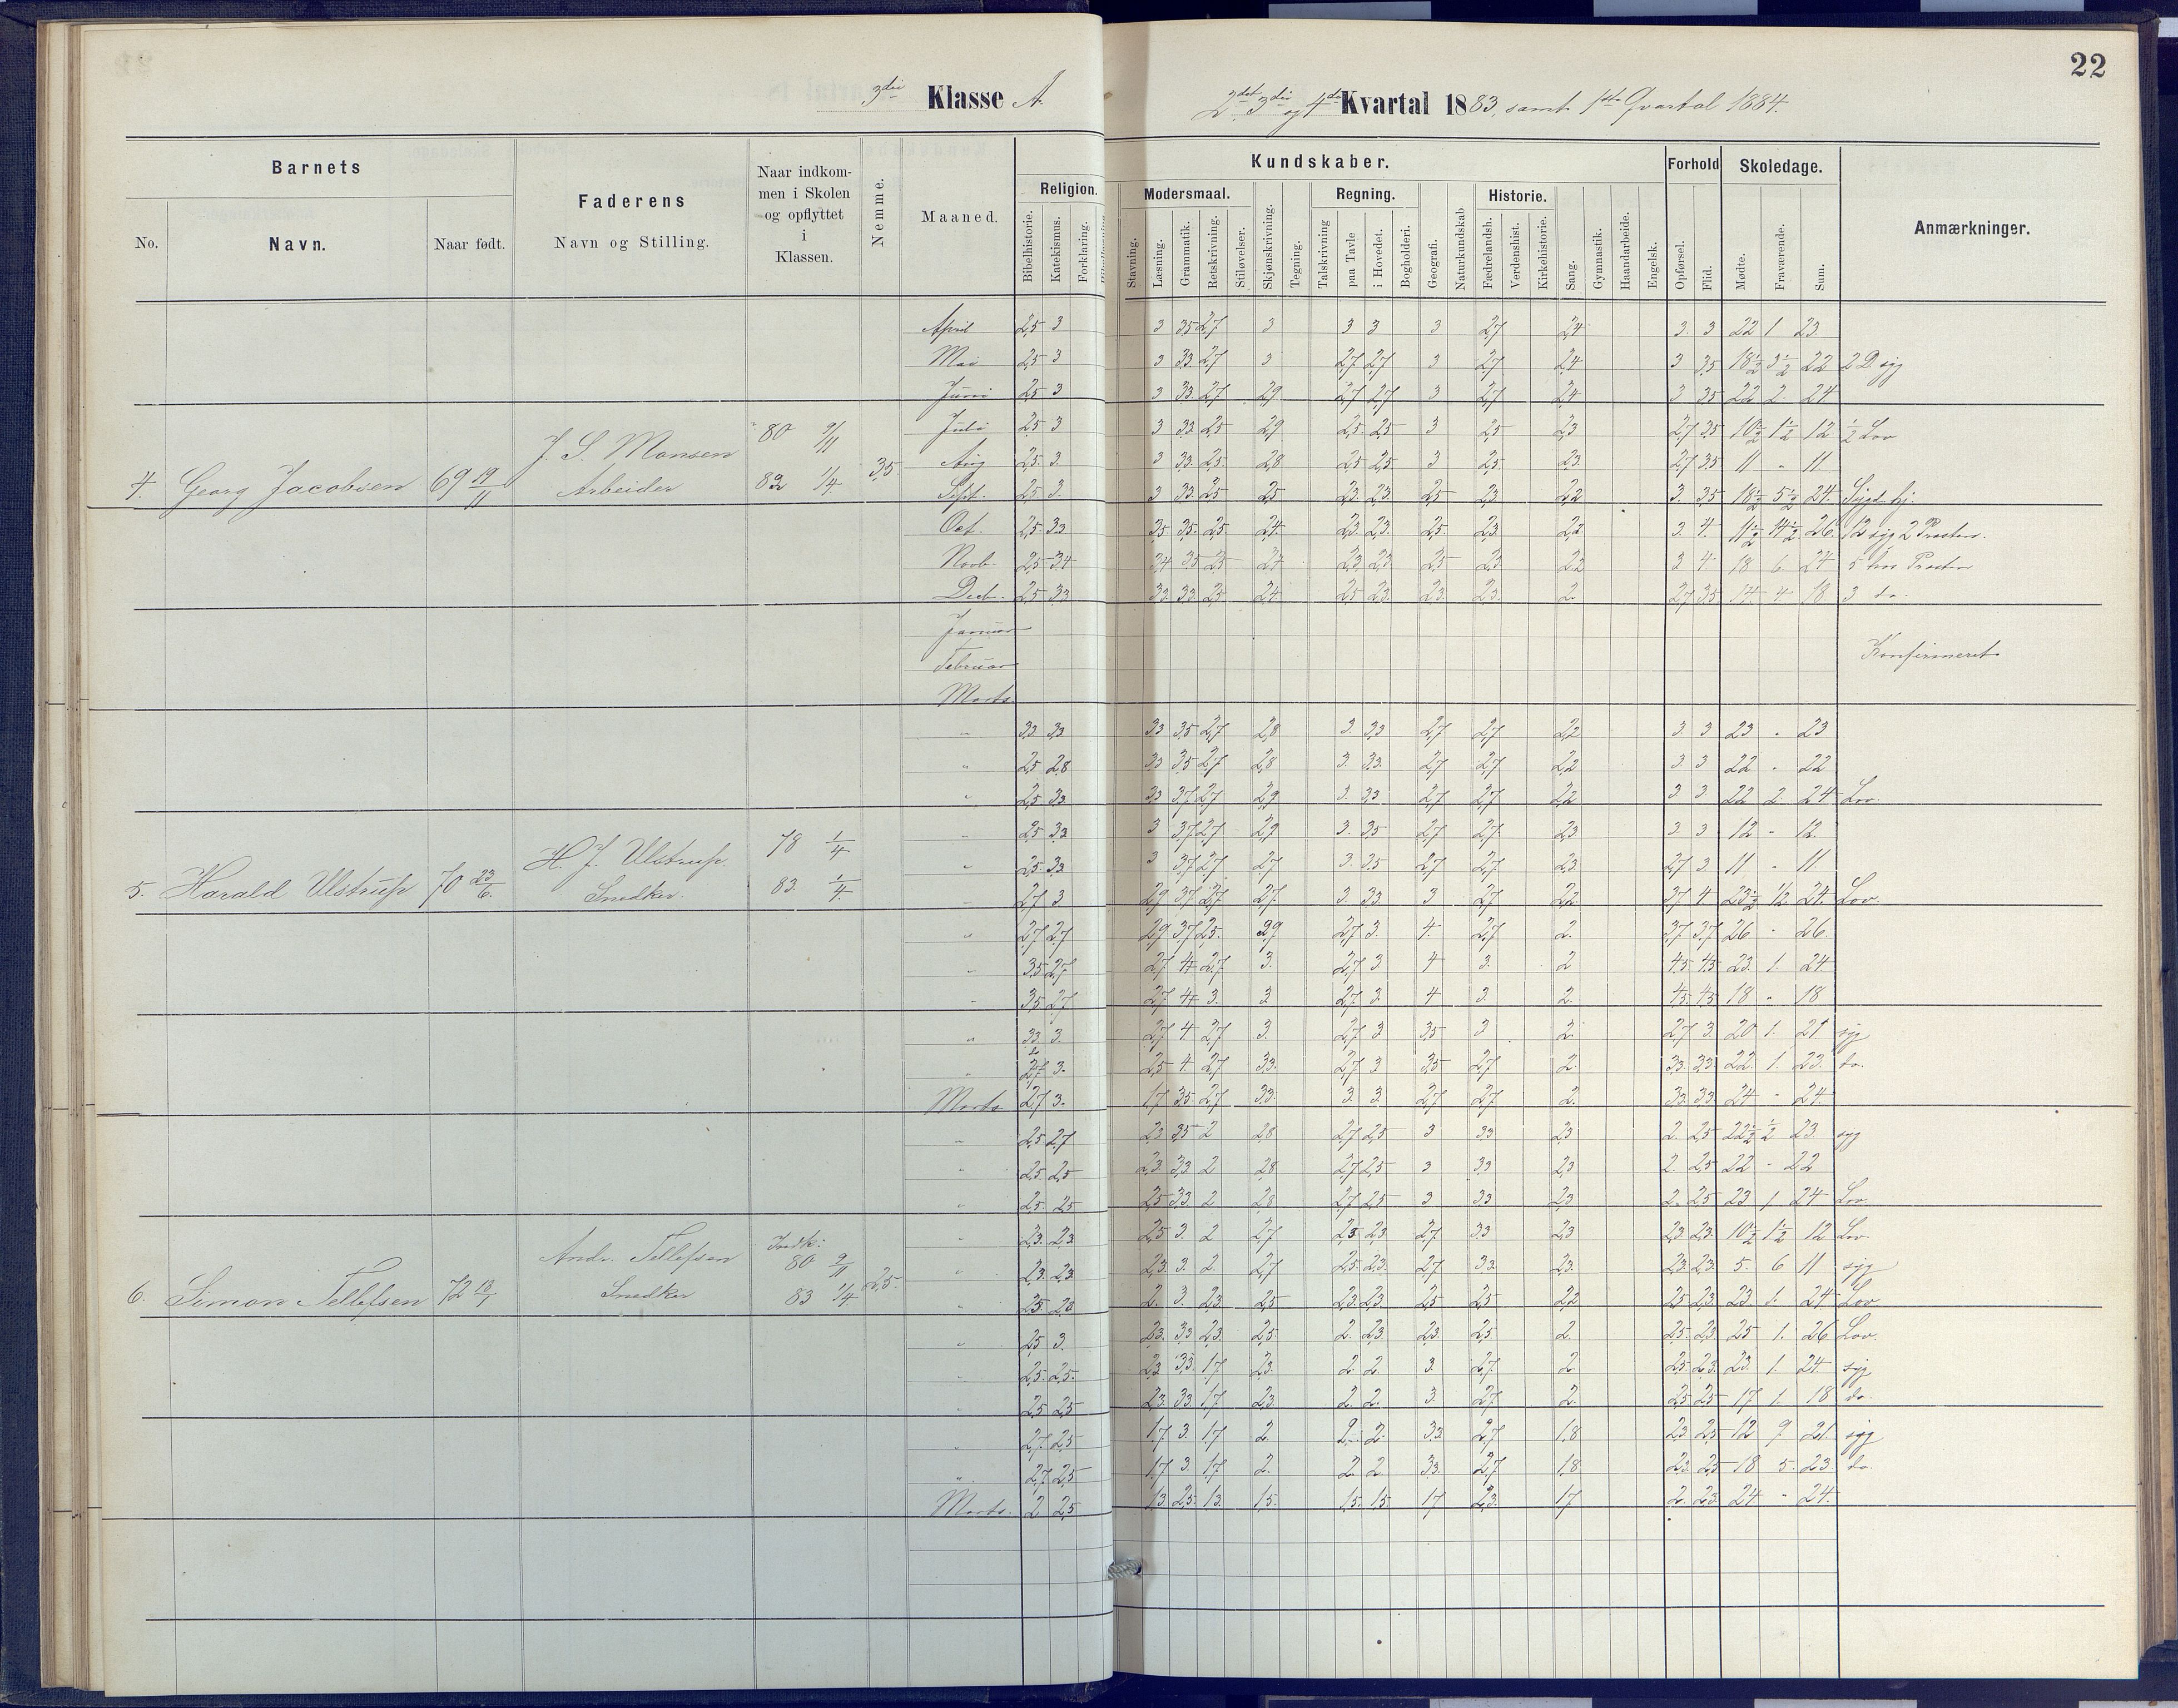 22
3die Klasse A.
2det 3die og 4de Kvartal 1883, samt 1ste Qvartal 1884.
Barnets
No.
Navn.
Naar født.
Faderens
Navn og Stilling.
Naar indkom-
men i Skolen
og opflyttet
i
Klassen.
Nemme.
Maaned.
Kundskaber.
Religion.
Bibelhistorie.
Katekismus.
Forklaring.
Modersmaal.
Stavning.
Læsning.
Grammatik.
Retskrivning.
Stiløvelser.
Skjønskrivning.
Tegning.
Regning.
Talskrivning
paa Tavle
i Hovedet.
Bogholderi.
Geografi.
Naturkundskab
Historie.
Fædrelandsh.
Verdenshist.
Kirkehistorie.
Sang.
Gymnastik.
Haandarbeide.
Engelsk.
Forhold
Opførsel.
Flid.
Skoledage.
Mødte.
Fraværende.
Sum.
Anmærkninger.
April 2,5 3 3 3,5 2,7 3 3 3 3 2,7 2,4 3. 3 22 1 23
Mai 2,5 3 3 3,3 2,7 3 2,7 2,7 3 2,7 2,4 3 3,5 18½ 3½ 22 2 D. syg
Juni 2,5 3 3 3,3 2,7 2,9 2,7 2,7 3 2,7 2,4 3 3,5 22 2 24
Juli 2,5 3 3 3,3 2,5 2,9 2,5 2,5 3 2,5 2,3 2,7 3,5 10½ 1½ 12 ½ Lov
Aug 2,5 3. 3 3,3 2,5 2,8 2,5 2,5 3 2,5 2,3 2,7 3,5 11 - 11
4. Georg Jacobsen 69 19/11 J. S. Monsen Arbeider 80 9/11 82 1/4 3,5
Sept. 2,5 3. 3 3,3 2,5 2,5 2,3 2,3 2,5 2,3 2,2 3. 3,5 18½ 5½ 24.
Oct. 2,5 3,3 3,5 3,5 2,5 2,4 2,3 2,3 2,5 2,3 2,2 3. 4. 11½ 14½ 26. 12 syg 2 Præsten.
Novb. 2,5 3,4 3,4 3,5 2,5 2,4 2,3 2,3 2,5 2,3 2,2 3 4 18 6 24 5 hos Præsten
Decb. 2,5 3,3 3,3 3,3 2,5 2,4 2,5 2,3 2,3 2,3 2. 2,7 3,5 14 4 18 3 do.
Januar
Februar Konfirmeret
Marts.
" 3,3 3,3 3,3 3,5 2,7 2,8 3. 3,3 2,7 2,7 2,2 3. 3 23 - 23
" 2,5 2,8 3,3 3,5 2,7 2,8 3. 3,3 2,7 2,7 2,2 3. 3 22 - 22
" 2,5 3,3 3,3 3,7 2,7 2,9 3. 3,3 2,7 2,7 2,2 3. 3. 22 2 24 Lov.
" 2,5 3,3 3 3,7 2,7 2,9 3. 3,5 2,7 2,7 2,3 3. 3 12 - 12.
" 2,5 3,3 3 3,7 2,7 2,7 3. 3,5 2,7 2,7 2,3 2,7 3. 11 - 11
5. Harald Ulstrup 70 23/6. H. J. Ulstrup. Snedker. 78 1/4 83. 1/4.
" 2,7 3 2,9 3,7 2,7 2,7 3. 3,3 3 2,7 2,2 3,7 4 23½ ½ 24. Lov.
" 2,7 2,7 2,9 3,7 2,5 2,9 2,7 3. 4 2,7 2. 3,7 3,7 26 - 26.
" 3,5 2,7 2,7 4 2,7 3. 2,7 3 4 3. 2 4,5 4,5 23. 1. 24
" 3,5 2,7 2,7 4 3. 3 2,7 3. 4 3. 2. 4,5 4,5 18 - 18
" 3,3 3. 2,7 4 2,7 3. 2,7 3 3,5 3 2. 2,7 3. 20 1. 21 syg
" 2,7 3. 2,5 4. 2,7 3,3. 2,7 3 3,5 2,7 2. 3,3 3,3 22. 1. 23. do.
Marts 2,7 3. 1,7 3,5 2,7 3,3. 3 3. 2,7 2,7 2. 3,3 3,3 24 - 24.
" 2,5 2,7 2,3 3,5 2 2,8 2,7 2,5 3 3,3 2,3 2. 2,5 22½ ½ 23. syg
" 2,5 2,5 2,3 3,3 2 2,8 2,7 2,5 3 3,3 2,3 2. 2,5 22 - 22
" 2,5 2,5 2,5 3,3 2 2,8 2,7 2,5 3 3,3 2,3 2. 2,5 23 1 24 Lov
" 2,3 2,3 2,5 3. 2 2,7 2,3 2,3 2,7 3,3 2,3 2,3 2,3 10½ 1½ 12 Lov.
" 2,3 2,3 2,3 3. 2. 2,7 2,5 2,3 2,7 3,3 2,3 2,3 2,3 5. 6 11 syg
6. Simon Tellefsen 72 13/1 Andr. Tellefsen Snedker Indk: 80 9/11 83 1/4 2,5.
" 2,5 2,3 2. 3. 2,3 2,5 2,3 2,3 2,5 2,5 2,2 2,5 2,3 23. 1. 24 Lov
" 2,5 3. 2,3 3,3 2,3 2,5 2. 2,3 2,3 2,5 2. 2,5 2,3 25 1. 26 Lov.
" 2,5 2,5 2,3 3,3 1,7 2,3 2. 2. 3. 2,7 2 2,5 2,3 23. 1. 24. syg
" 2,5 2,5 2,3 3,3 1,7 2,3 2. 2. 3. 2,7 2. 2,5 2,5 17 1. 18 do.
" 2,7 2,5 1,7 3. 1,7 2. 2. 2. 3,3 2,7 1,8 2,3 2,5 12 9 21. syg
" 2,7 2,5 1,7 3. 1,7 2. 2. 2. 3,3 2,7 1,8 2,3 2,5 18 5. 23. do.
Marts. 2 2,5 1,3 2,5 1,3. 1,5. 1,5 1,5 1,7 2,3 1,7 2. 2,3 24 - 24.